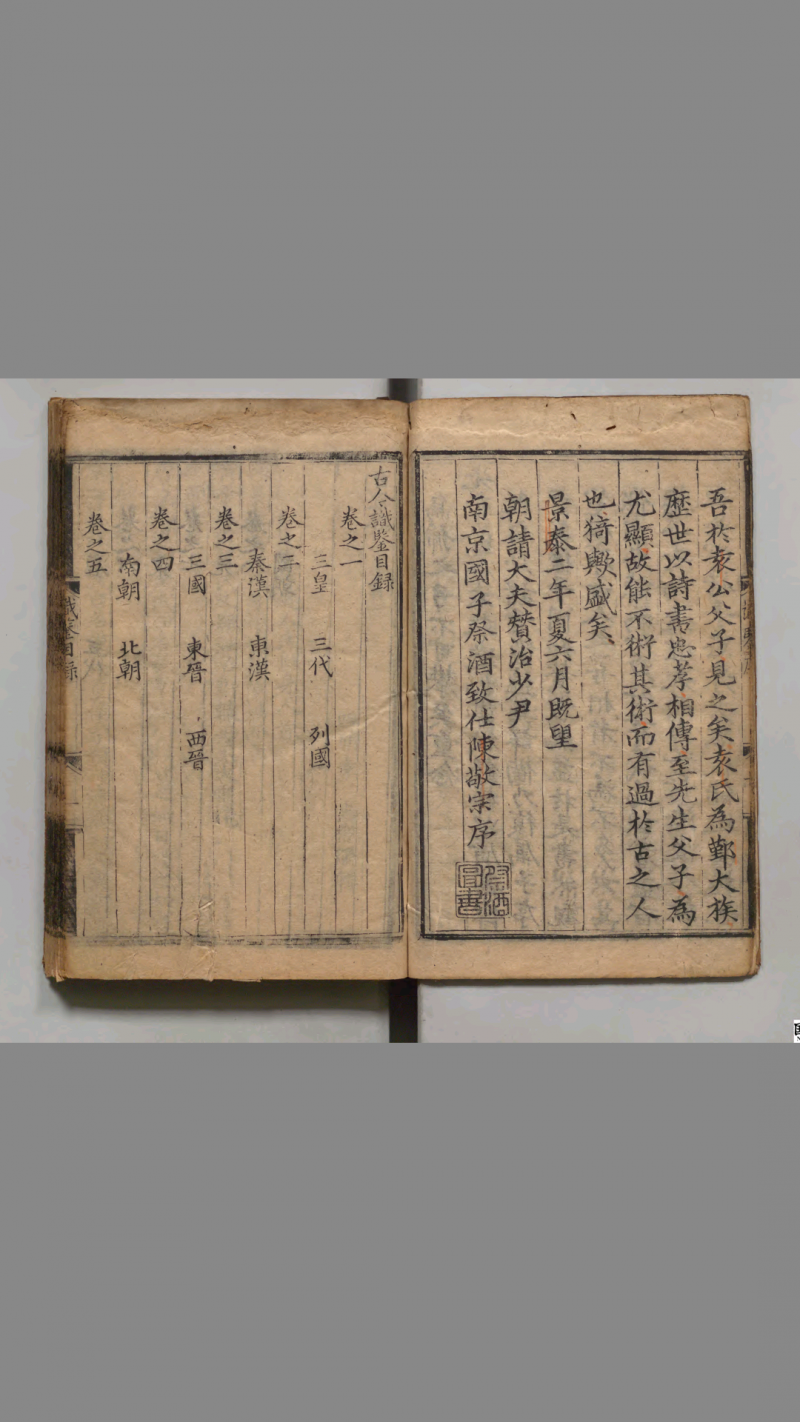 吾於袁公父子見之矣袁氏為鄞大族
歷世以詩書忠孝相傳至先生父子為
尤顯故能不術其術而有過於古之人
也猗歟盛矣
景泰二年夏六月既望
朝請大夫贊治少尹
南京國子祭酒致仕陳敬宗序
祭酒圖書
古今識鑒目錄
卷之一
三皇 三代 列國
卷之二
秦漢 東漢
卷之三
三國 東晉 西晉
卷之四
南朝 北朝
卷之五
識鑒目錄